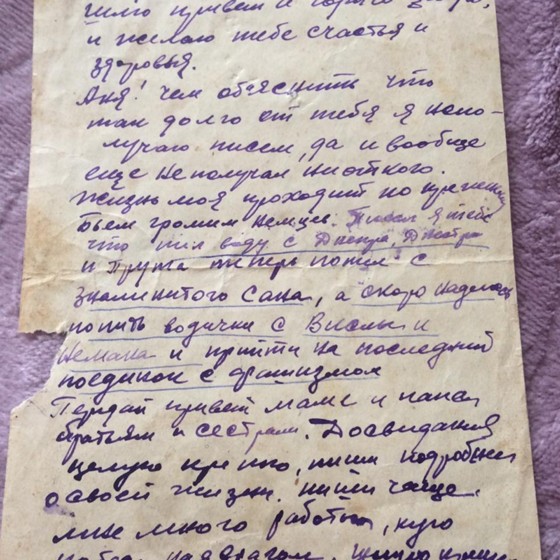 привет и
и желаю тебе счастья и
здоровья.
Аня! чем объяснить что
так долго от тебя я непо-
лучаю писем, да и вообще
еще не получал ниоткого.
Жизнь моя проходит по прежнему
Бьем громим немцев. Писал я тебе
что пил воду с Днепра, Днестра
и Прута теперь попил с
знаменитого Сана, а скоро надеюсь
попить водички с Вислы и
Немана и притти на последний
поединок с фашизмом
Передай привет маме и папе
братьям и сестрам. Досвидания
целую крепко, пиши подробней
о своей жизни. пиши чаще.
мне много работы,